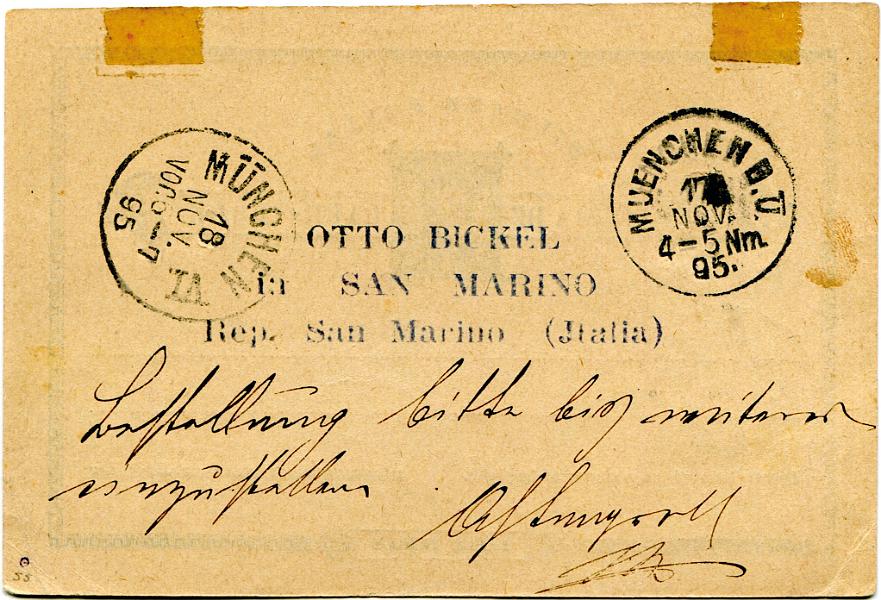 MÜNCHEN VI.
18
NOV.
VOR.6-7
95
MUENCHEN B.U
17
NOV.
4-5 Nm.
95.
OTTO BICKEL
in SAN MARINO
Rep. San Marino (Jtalia)
Bestellung bitte bis weiteres
einzustellen
Achtungsvoll
22